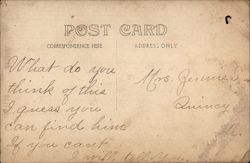 POST CARD
CORRESPONDENCE HERE
ADDRESS ONLY
What do you
think of this
I guess you
can find him
If you cant
I will tell
Mrs.
Quincy